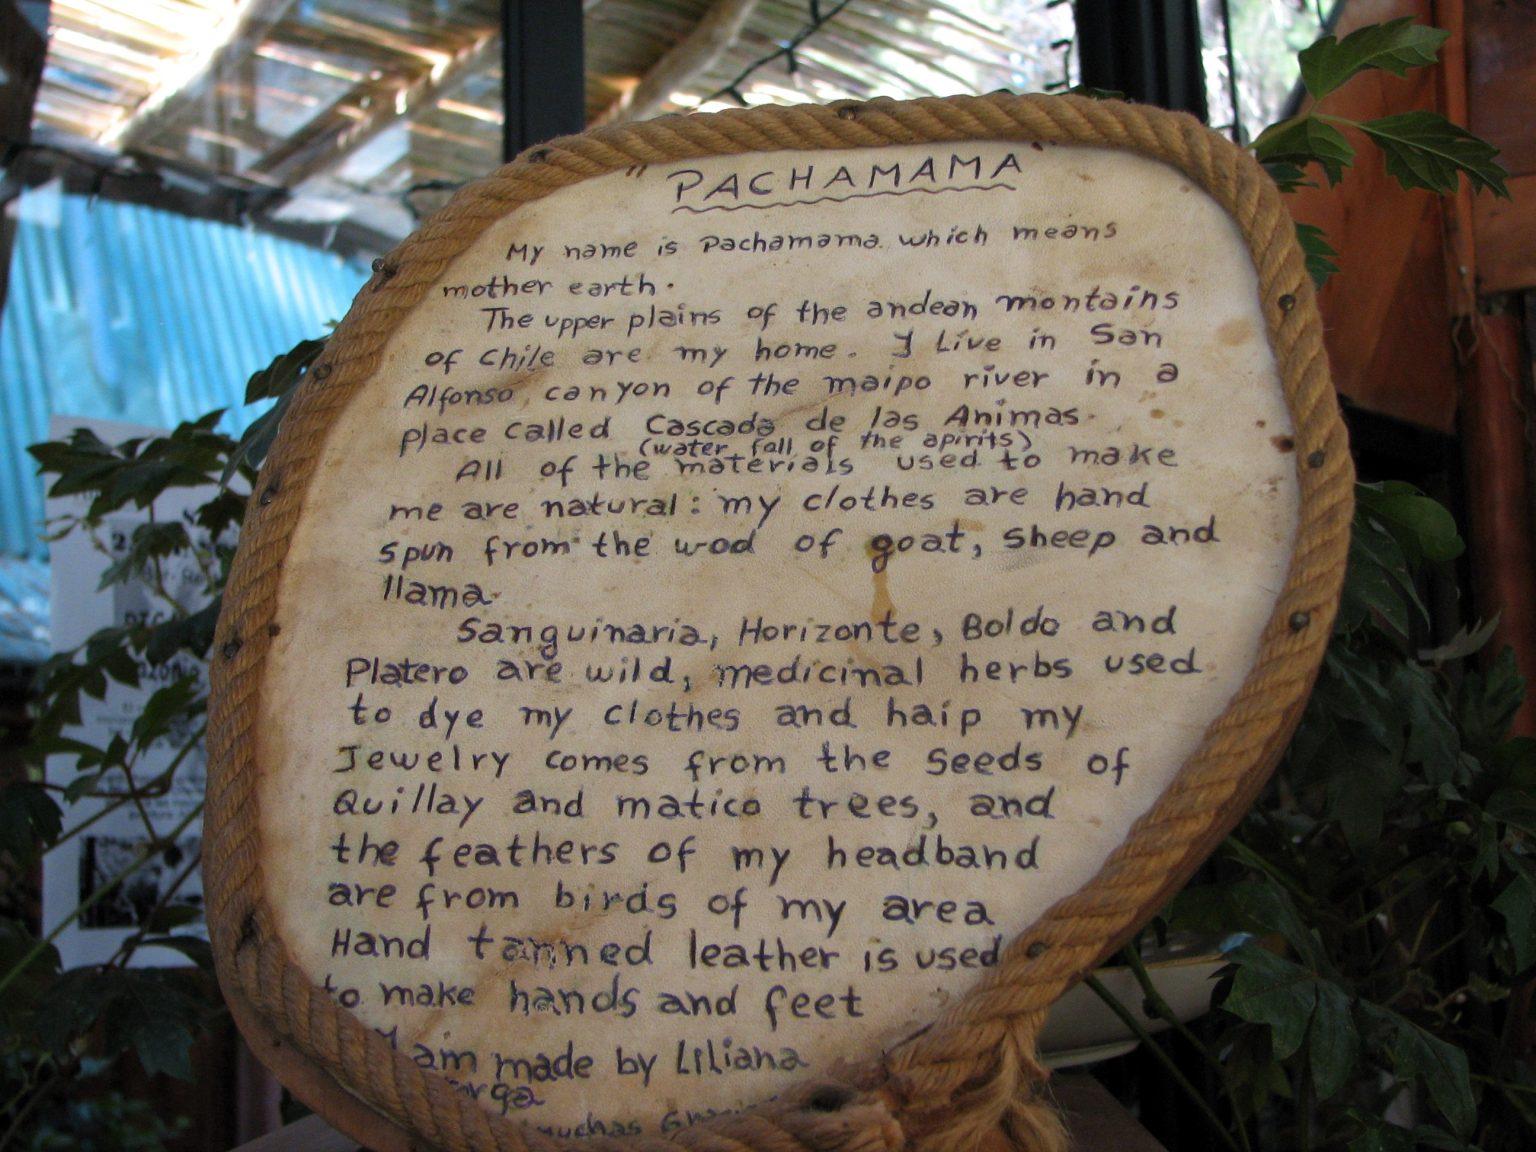 " PACHAMAMA
My name is Pachamama which means
mother earth.
The upper plains of the andean montains
of chile are my home. I Live in San
Alfonso, canyon of the maipo river in a
place called Cascada de las Animas.
(water fall of the apirits)
All of the materials used to make
me are natural: my clothes are hand
spun from the wod of goat, sheep and
llama.
Sanguinaria, Horizonte, Boldo and
Platero are wild, medicinal herbs used
to dye my clothes and haip my
Jewelry comes from the seeds of
Quillay and matico trees, and
the feathers of my headband
are from birds of my area
Hand tanned leather is used
to make hands and feet
I am made by Liliana
muchas